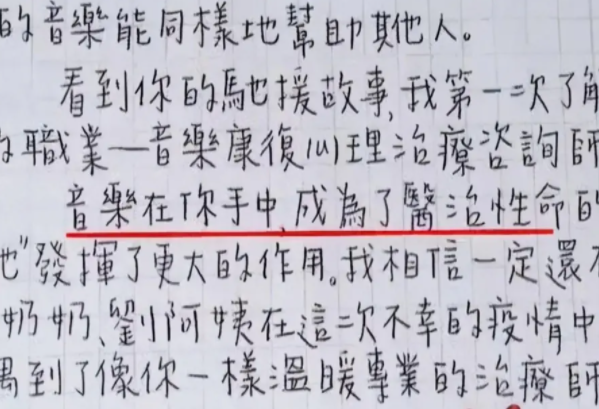 的音樂能同樣地幫助其他人。
看到你的馳援故事,我第一次了解
職業—音樂康復心理治療咨詢師
音樂在你手中,成為了醫治性命的
地"發揮了更大的作用。我相信一定還
奶奶、劉阿姨在這次不幸的疫情中
遇到了像你一樣溫暖專業的治療師